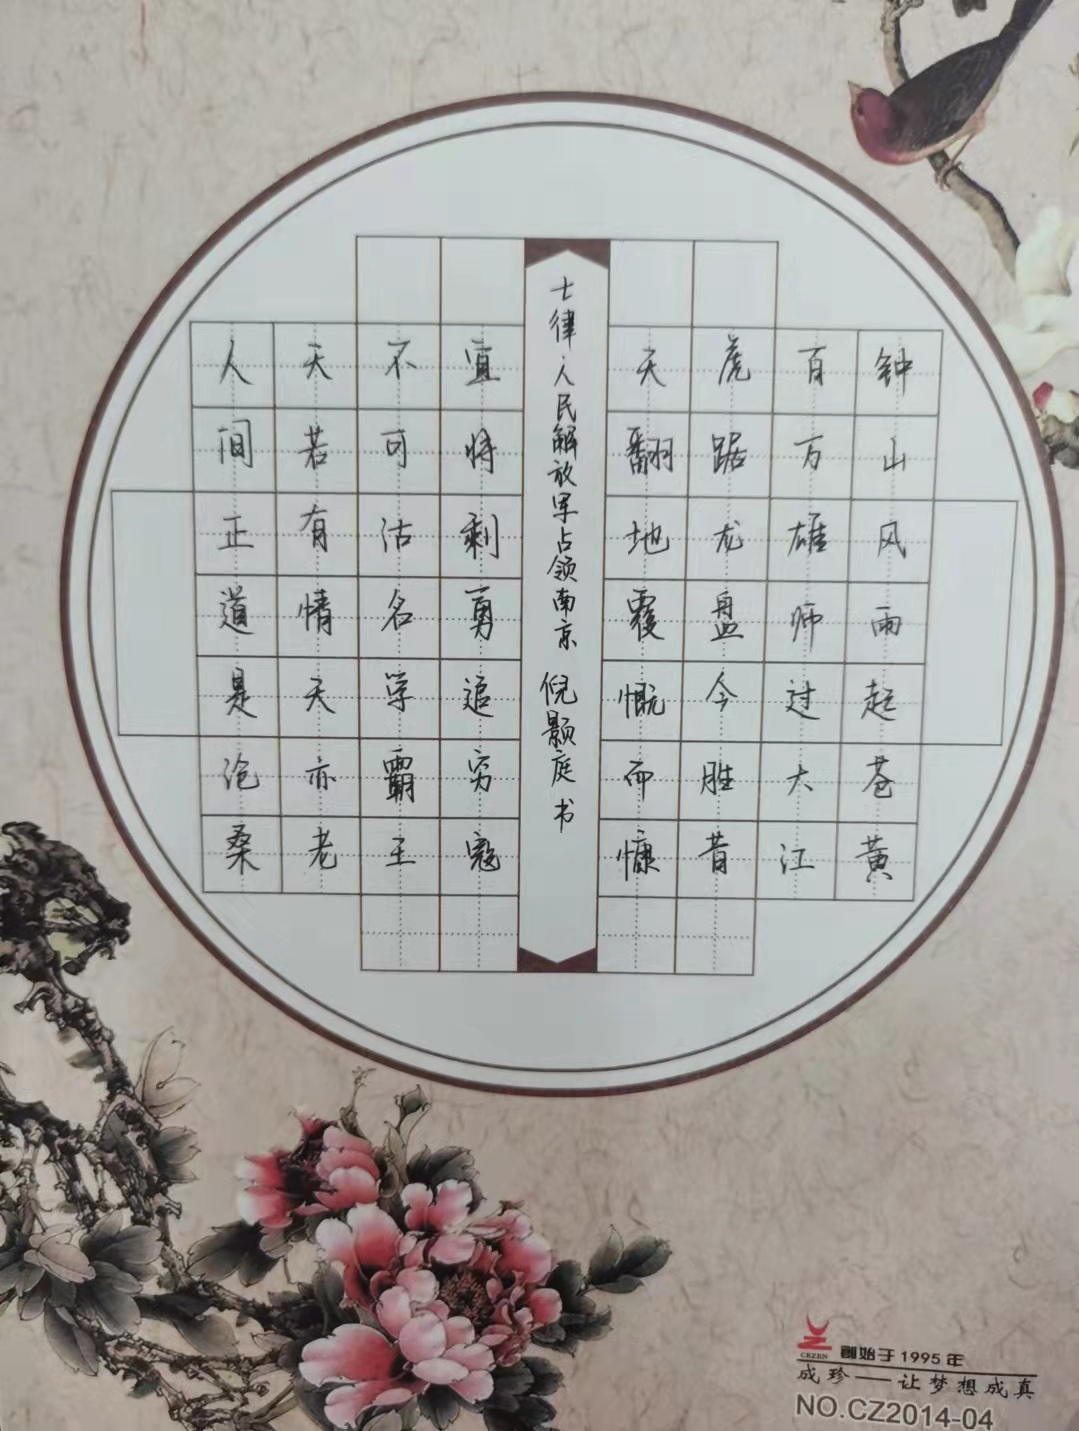 钟山风雨起苍黄
百万雄师过大江
虎踞龙盘今胜昔
天翻地覆慨而慷
七律·人民解放军占领南京 倪颢庭书
宜将剩勇追穷寇
不可沽名学霸王
天若有情天亦老
人间正道是沧桑
CEZEN
創始于1995年
成珍——让梦想成真
NO.CZ2014-04